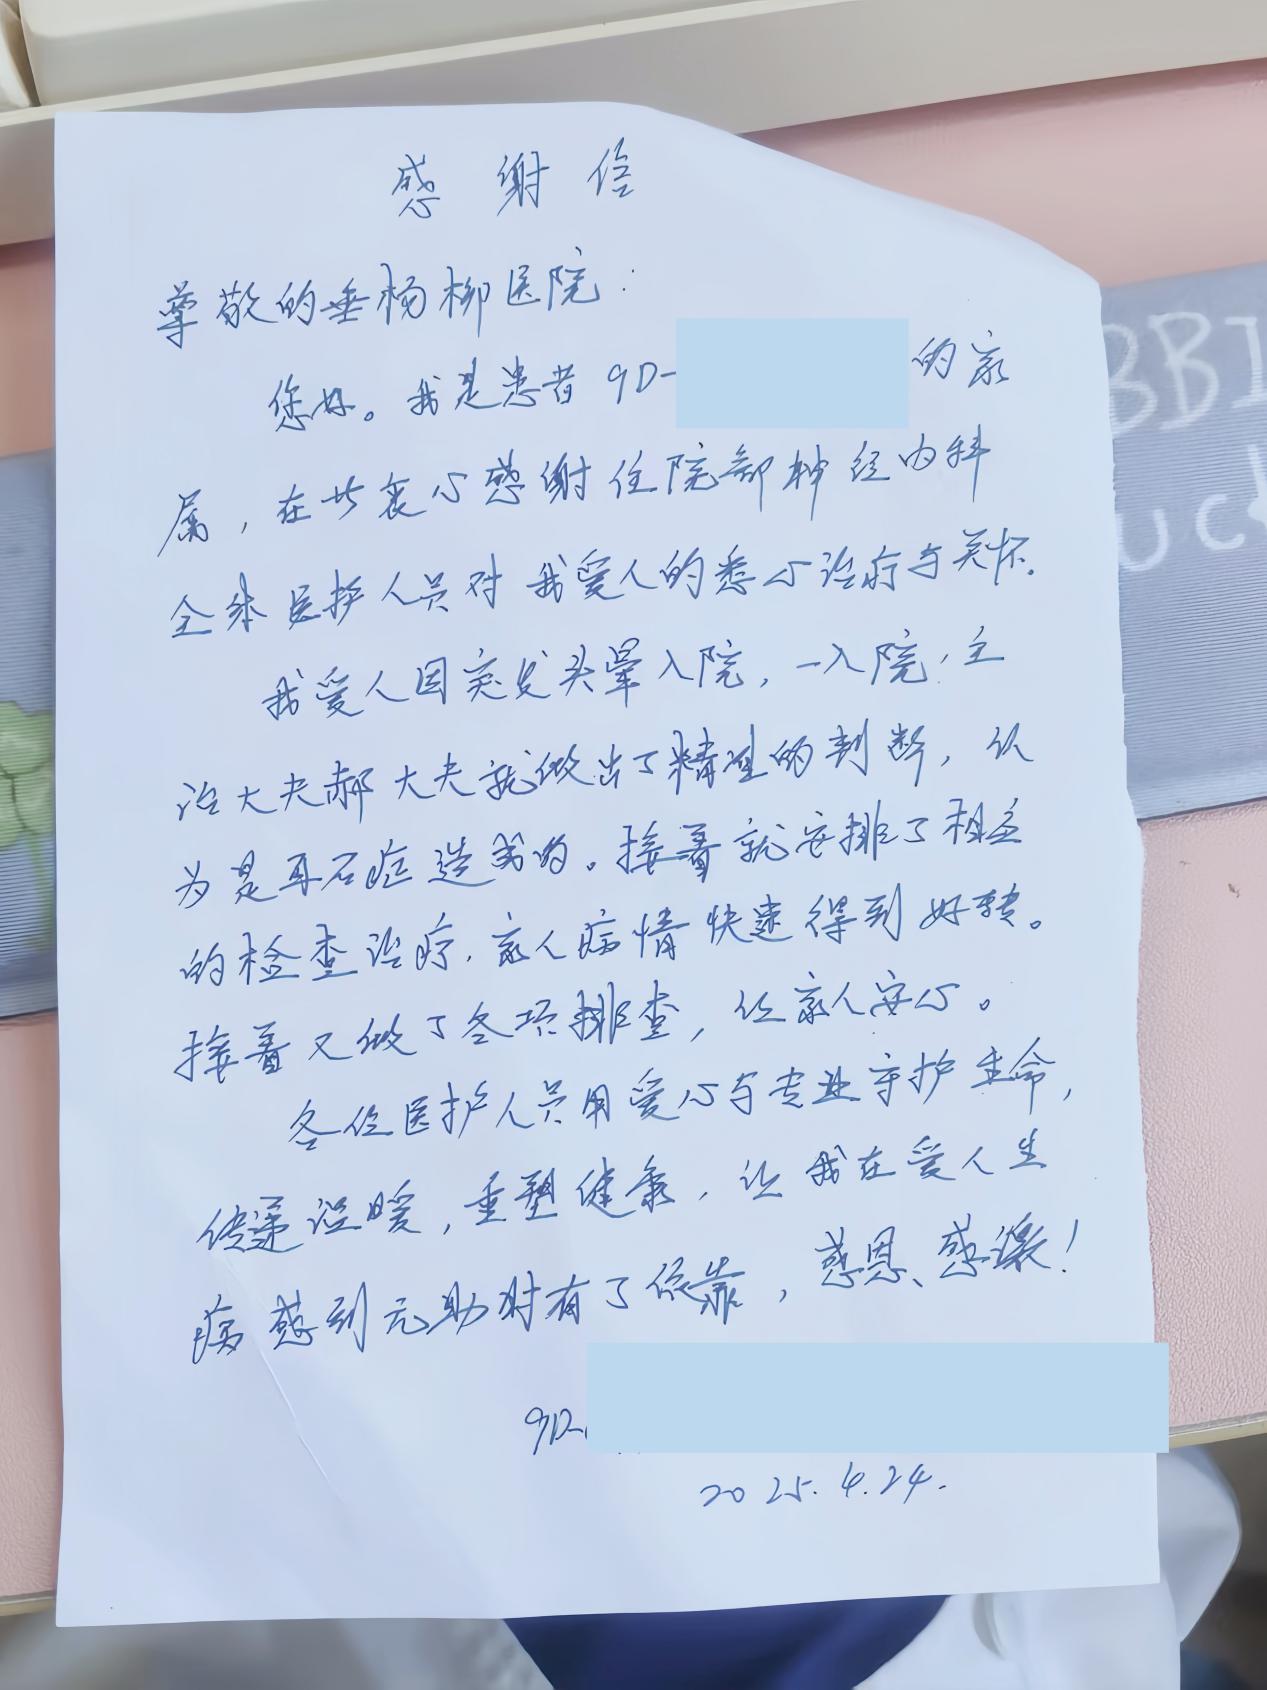 感谢信
尊敬的垂杨柳医院：
您好。我是患者9D-
的家
属，在此衷心感谢住院部神经内科
全体医护人员对我爱人的悉心治疗与关怀.
我爱人因突发头晕入院，一入院，主
治大夫郝大夫就做出了精准的判断，认
为是耳石症造成的。接着就安排了相应
的检查治疗，家人病情快速得到好转。
接着又做了各项排查，让家人安心。
各位医护人员用爱心与专业守护生命，
传递温暖，重塑健康，让我在爱人生
病感到无助时有了依靠，感恩、感激！
9D-
2025.4.24.
BBI
UC